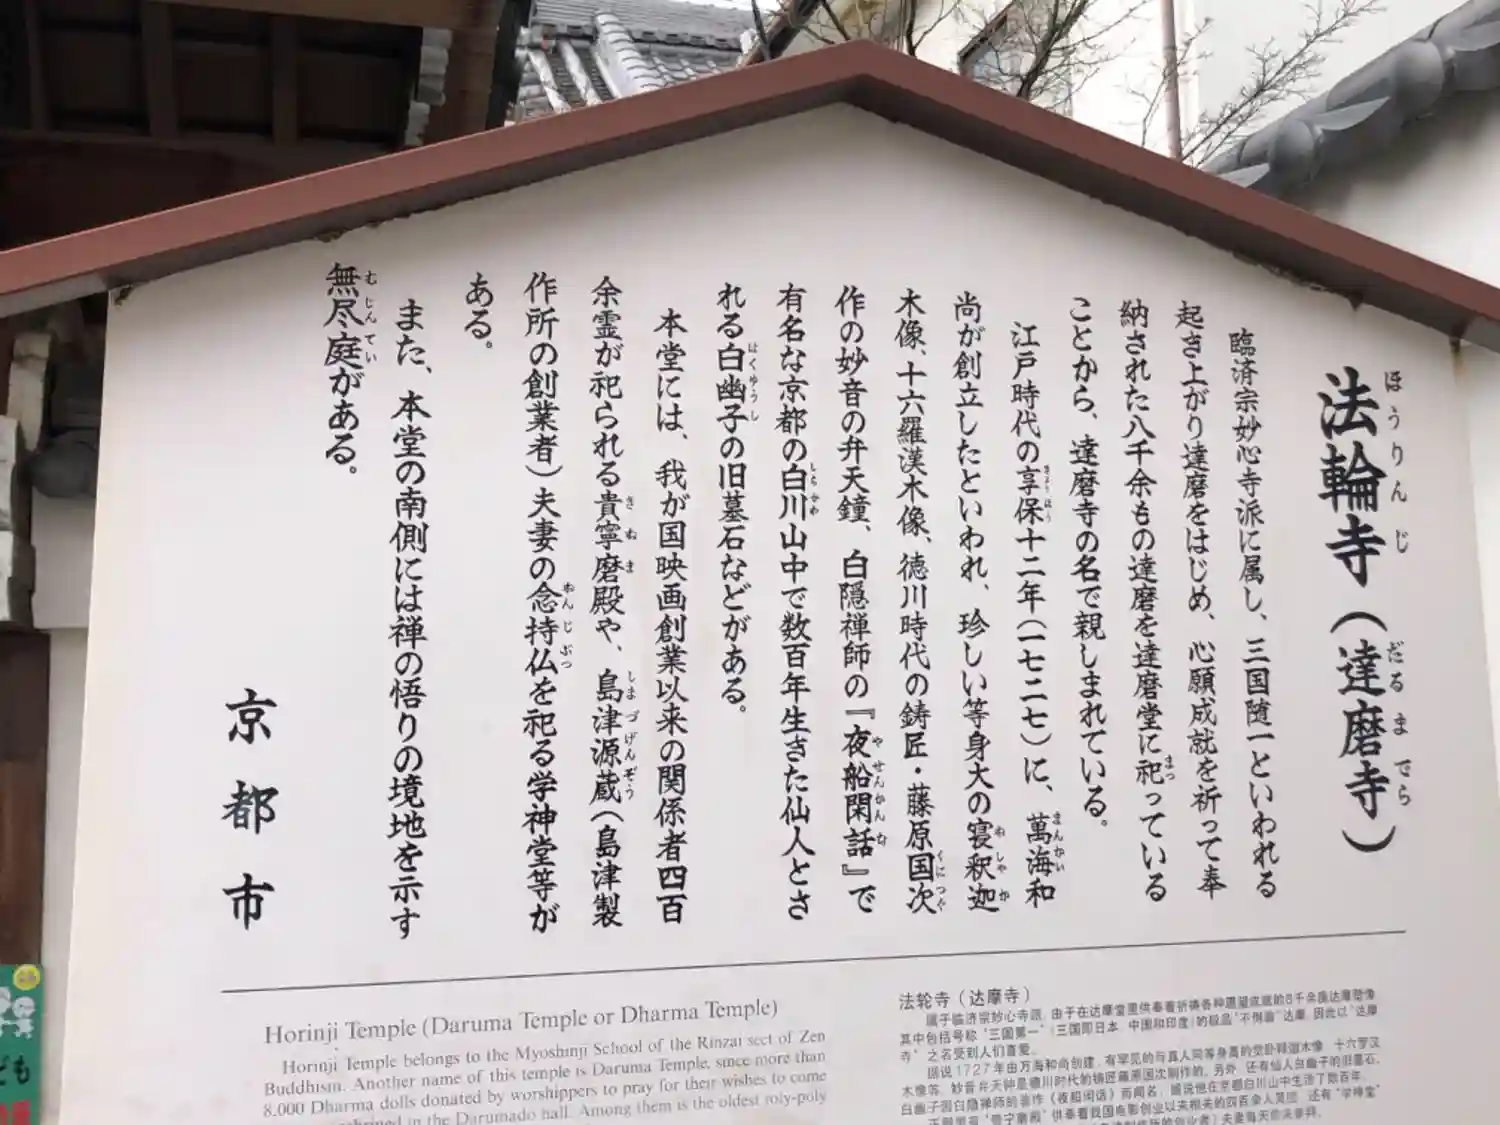 法輪寺（達磨寺）
ほうりんじ だるまでら
臨済宗妙心寺派に属し、三国随一といわれる
起き上がり達磨をはじめ、心願成就を祈って奉
納された八千余もの達磨を達磨堂に祀っている
まつ
ことから、達磨寺の名で親しまれている。
江戸時代の享保十二年（一七二七）に、萬海和
きょうほう まんかい
尚が創立したといわれ、珍しい等身大の寝釈迦
ねしゃか
木像、十六羅漢木像、徳川時代の鋳匠・藤原国次
くにつぐ
作の妙音の弁天鐘、白隠禅師の『夜船閑話』で
やせんかんな
有名な京都の白川山中で数百年生きた仙人とさ
しらかわ
れる白幽子の旧墓石などがある。
はくゆうし
本堂には、我が国映画創業以来の関係者四百
余霊が祀られる貴寧磨殿や、島津源蔵（島津製
きねま しまづげんぞう
作所の創業者）夫妻の念持仏を祀る学神堂等が
ねんじぶつ
ある。
また、本堂の南側には禅の悟りの境地を示す
無尽庭がある。
むじんてい
京都市
Horinji Temple (Daruma Temple or Dharma Temple)
Horinji Temple belongs to the Myoshinji School of the Rinzai sect of Zen
Buddhism. Another name of this temple is Daruma Temple, since more than
8,000 Dharma dolls donated by worshippers to pray for their wishes to come
enshrined in the Darumado hall. Among them is the oldest roly-poly
法轮寺（达摩寺）
属于临济宗妙心寺派。由于在达摩堂里供奉着祈祷各种愿望成就的8千余座达摩塑像
其中包括号称“三国第一”（三国即日本、中国和印度）的极品“不倒翁”达摩，因此以“达摩
寺”之名受到人们喜爱。
据说1727年由万海和尚创建，有罕见的与真人同等身高的觉卧释迦木像、十六罗汉
木像等。妙音弁天钟是德川时代的铸匠藤原国次制作的。另外，还有仙人白幽子的旧墓石，
白幽子因白隐禅师的著作《夜船闲话》而闻名，据说他在京都白川山中生活了数百年。
ども